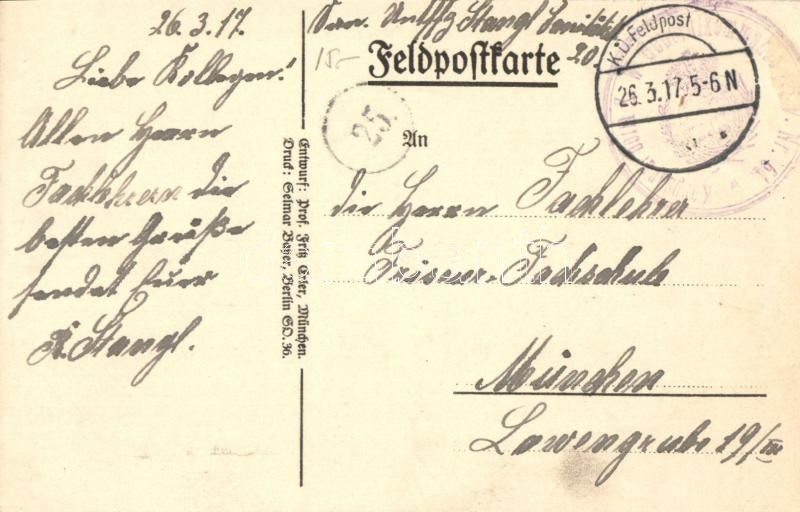 26.3.17.
Liebe Kollegen!
Allen Herrn
Fachlehrern die
besten Grüße
sendet Euer
K. Stangl.
San. Untffz Stangl
20.
15-
Feldpostkarte
K.D. Feldpost
26.3.17 5-6 N
Nr. 64
25.
An
die Herrn Fachlehrer
Friseur-Fachschule
München
Lowengrube 19/III
Entwurf: Prof. Fritz Erler, München.
Druck: Selmar Bayer, Berlin SO. 36.